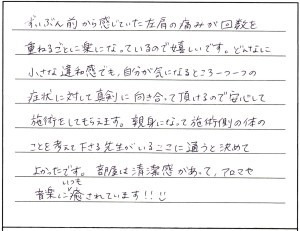 ずいぶん前から感じていた左肩の痛みが回数を
重ねるごとに楽になっているので嬉しいです。どんなに
小さな違和感でも、自分が気になるところ一つ一つの
症状に対して真剣に向き合って頂けるので安心して
施術をしてもらえます。親身になって施術側の体の
ことを考えて下さる先生がいるここに通うと決めて
よかったです。部屋は清潔感があって、アロマや
音楽にいつも癒されています!!